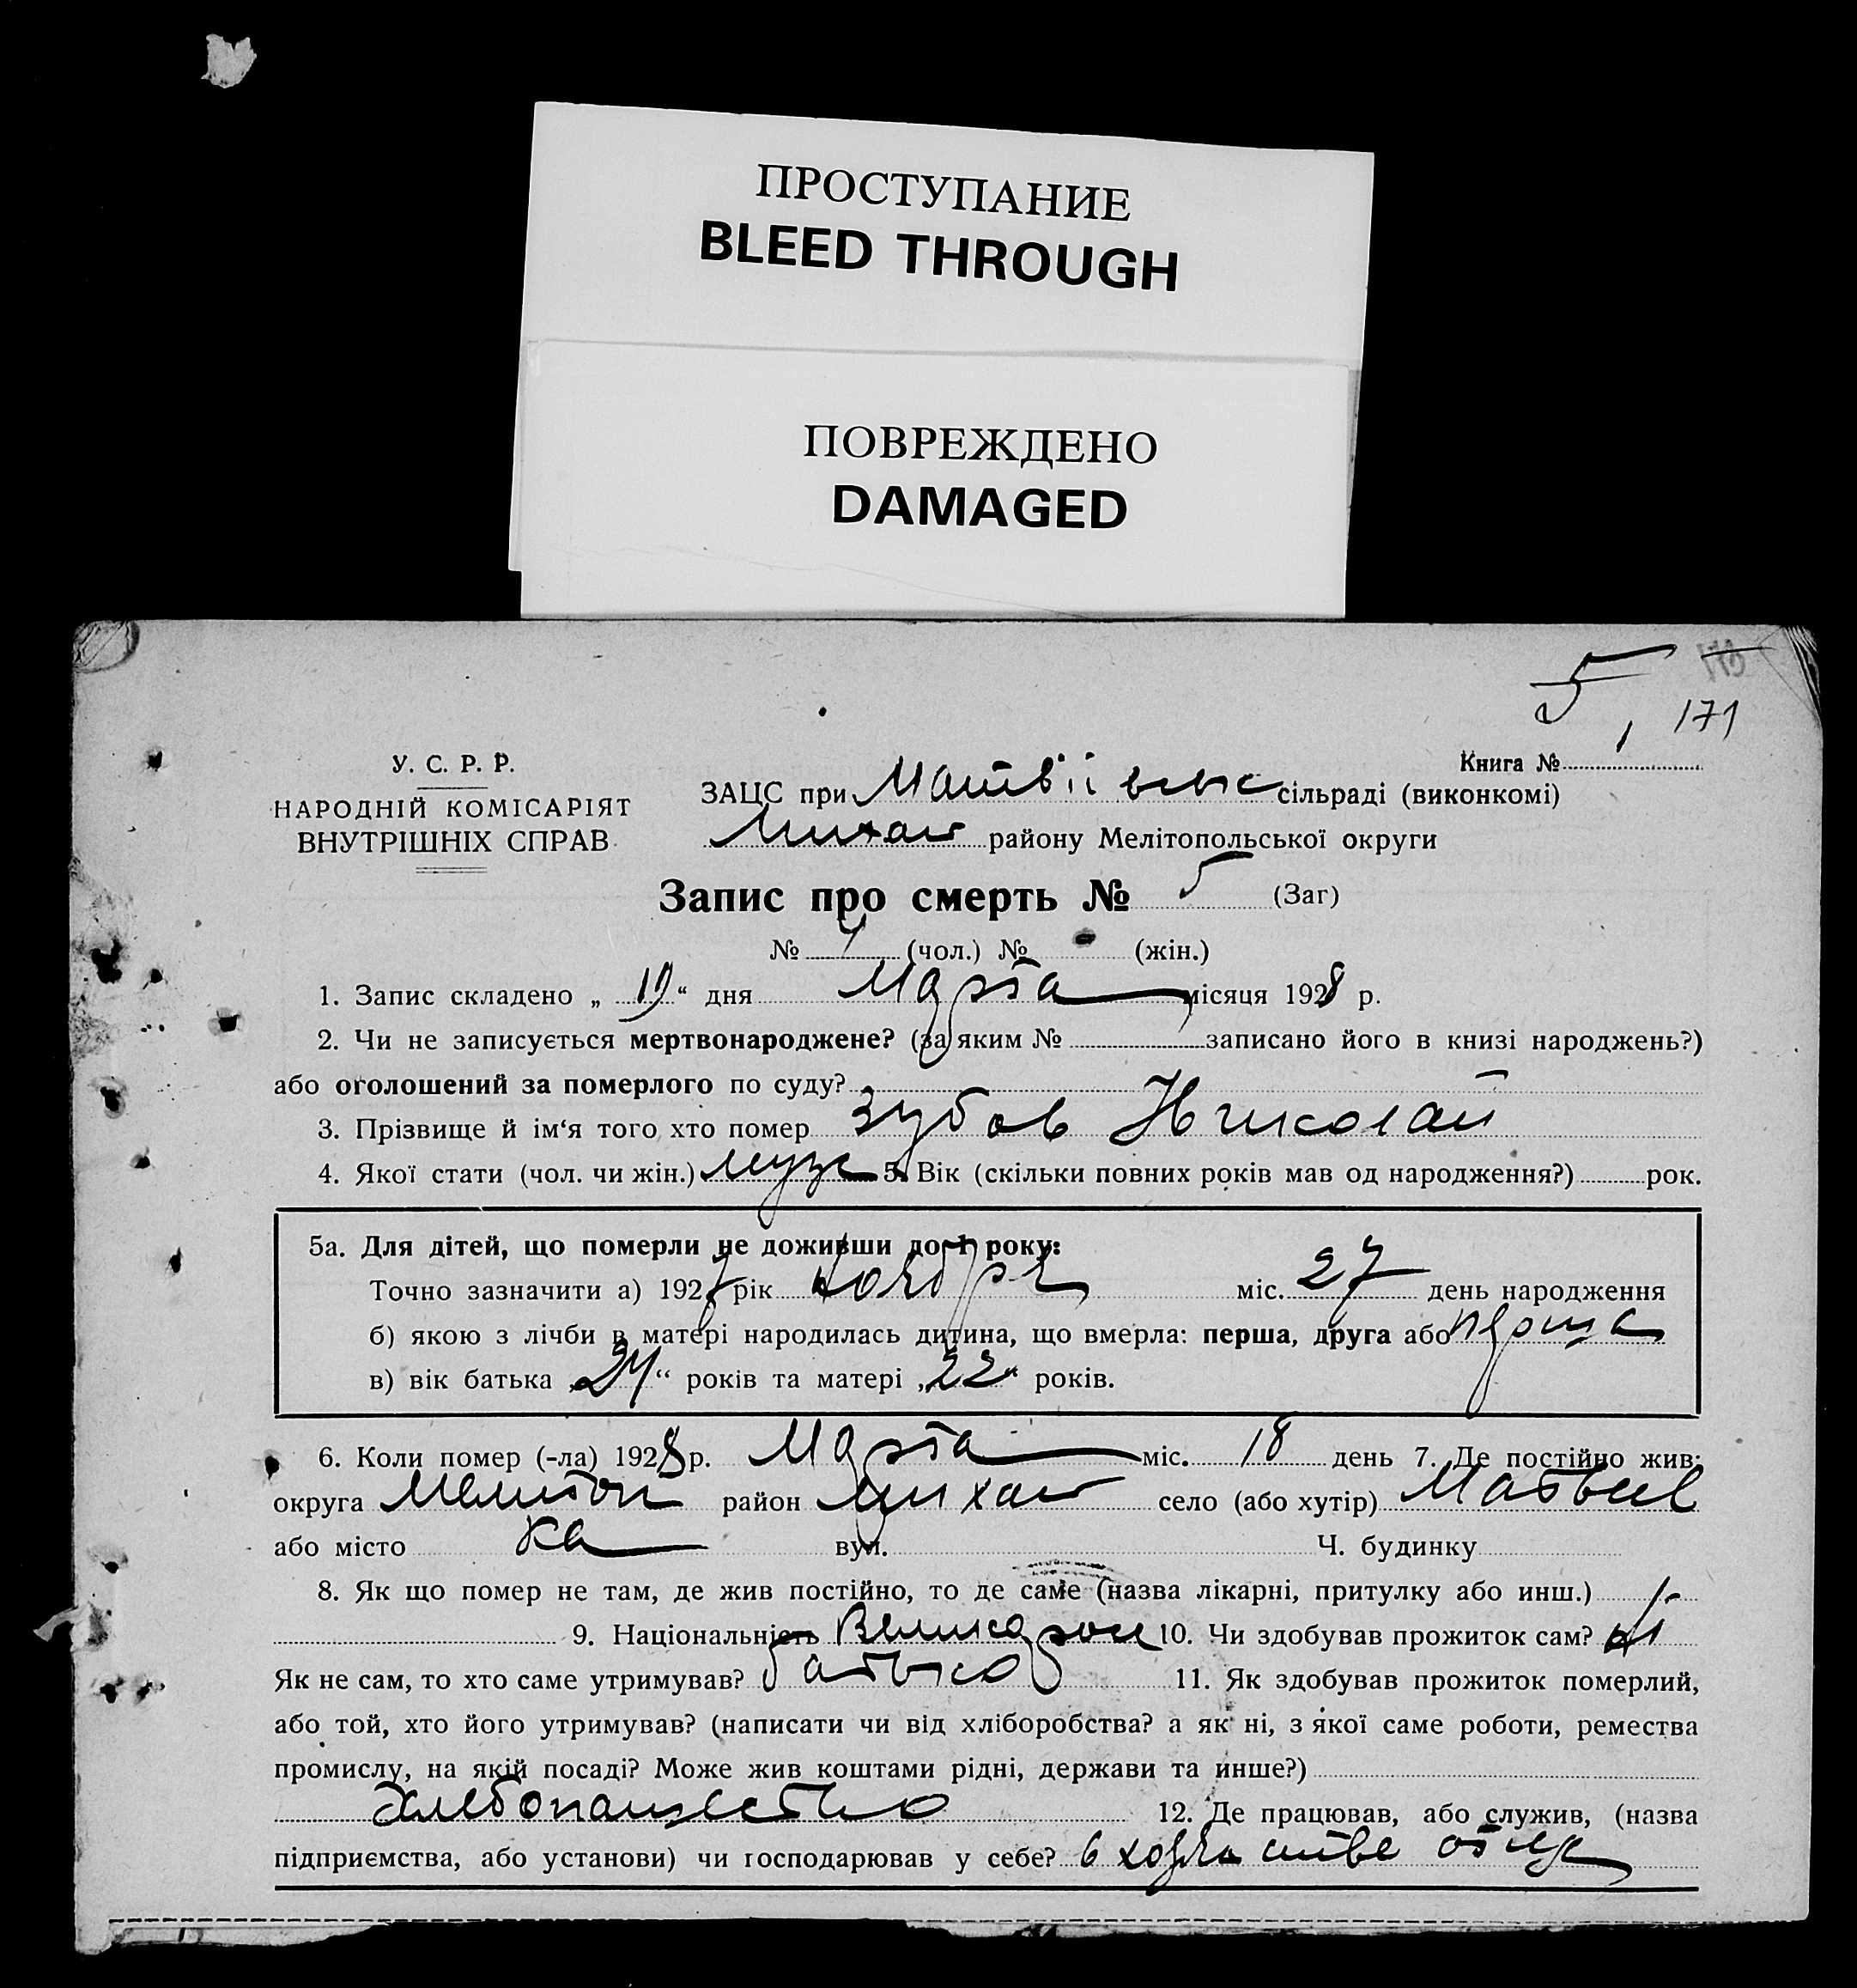 ПРОСТУПАНИЕ
BLEED THROUGH
ПОВРЕЖДЕНО
DAMAGED
5 173
171
У. С. Р. Р.
НАРОДНІЙ КОМІСАРІЯТ
ВНУТРІШНІХ СПРАВ
Книга № 1
ЗАЦС при Матвіївськ сільраді (виконкомі)
Михай району Мелітопольської округи
Запис про смерть № 5 (Заг)
№ 4 (чол.) № - (жін.)
1. Запис складено „ 19 “ дня Марта місяця 1928 р.
2. Чи не записується мертвонароджене? (за яким № записано його в книзі народжень?)
або оголошений за померлого по суду?
3. Прізвище й ім‘я того хто помер Зубов Николай
4. Якої стати (чол. чи жін.) муж 5. Вік (скільки повних років мав од народження?) рок.
5а. Для дітей, що померли не доживши до 1 року:
Точно зазначити а) 1927 рік Ноября міс. 27 день народження
б) якою з лічби в матері народилась дитина, що вмерла: перша, друга або перша
в) вік батька „24“ років та матері „22“ років.
6. Коли помер (-ла) 1928 р. Марта міс. 18 день 7. Де постійно жив:
округа Мелитоп район Михай село (або хутір) Матвеев
або місто ка вул. Ч. будинку
8. Як що помер не там, де жив постійно, то де саме (назва лікарні, притулку або инш.)
9. Національність Великорос 10. Чи здобував прожиток сам? Ні
Як не сам, то хто саме утримував? батько 11. Як здобував прожиток померлий,
або той, хто його утримував? (написати чи від хліборобства? а як ні, з якої саме роботи, ремества
промислу, на якій посаді? Може жив коштами рідні, держави та инше?)
Хлебопашество 12. Де працював, або служив, (назва
підприємства, або установи) чи господарював у себе? в хозяйстве отца